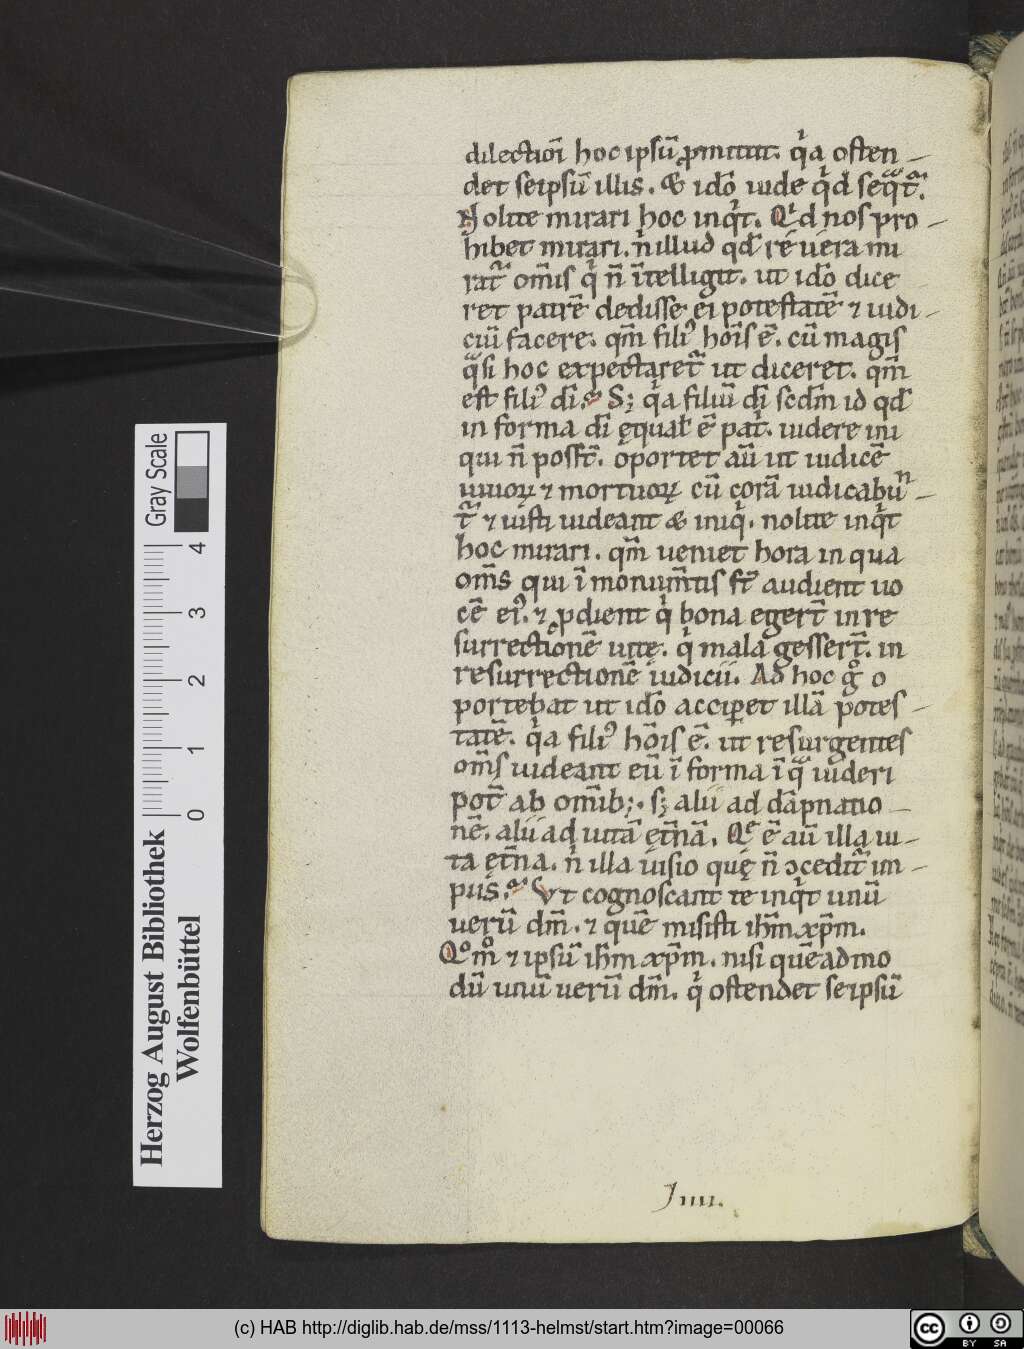 dilectiōi hoc ipsū ꝓmittit. qͥa osten-
det seipsū illis. & idō inde qͥd seqᵃt᷑.
Nolite mirari hoc inqͥt. Qͥd nos pro-
hibet mirari. nͥ illud qd̄ re uera mi
rat᷑ om̄is qͥ n̄ ītelligit. ut idō dice
ret patrē dedisse ei potestatē ⁊ iudi-
ciū facere. qm̄ filiꝰ hōis ē. cū magis
qᵃsi hoc expectaret᷑ ut diceret. qm̄
est filiꝰ dī. Sꝫ qͥa filiū dī scdm̄ id qd̄
in forma dī ęqual' ē pat'. uidere ini
qui n̄ possт̄. oportet aū ut iudicē
uiuoꝝ ⁊ mortuoꝝ cū corā iudicabūn-
t᷑ ⁊ iusti uideant & iniqͥ. nolite inqͥt
hoc mirari. qm̄ ueniet hora in qua
om̄s qui ī monum̄tis st̄ audient uo
cē eiꝰ. ⁊ ꝓdient qͥ bona egert̄ in re
surrectionē uitę. qͥ mala gessert̄. in
resurrectionē iudicii. Ad hoc gͦ o
portebat ut idō acciꝑet illā potes-
tatē. qͥa filiꝰ hōis ē. ut resurgentes
om̄s uideant eū ī forma ī qᵃ uideri
pot̄ ab omībꝫ. sꝫ alii ad dāpnatio-
nē. alii ad uitā ęt̄nā. Qᵉ ē aū illa ui-
ta ęt̄na. nͥ illa uisio quę n̄ ↄcedit᷑ im-
piis. Vt cognoscant te inqͥt unū
uerū dm̄. ⁊ quē misisti ih̄m xp̄m.
Qͦmͦ ⁊ ipsū ih̄m xp̄m. nisi quēadmo
dū unū uerū dm̄. qͥ ostendet seipsū
IIIII.
Herzog August Bibliothek
Wolfenbüttel
0 1 2 3 4
Gray Scale
(c) HAB http://diglib.hab.de/mss/1113-helmst/start.htm?image=00066
cc BY SA